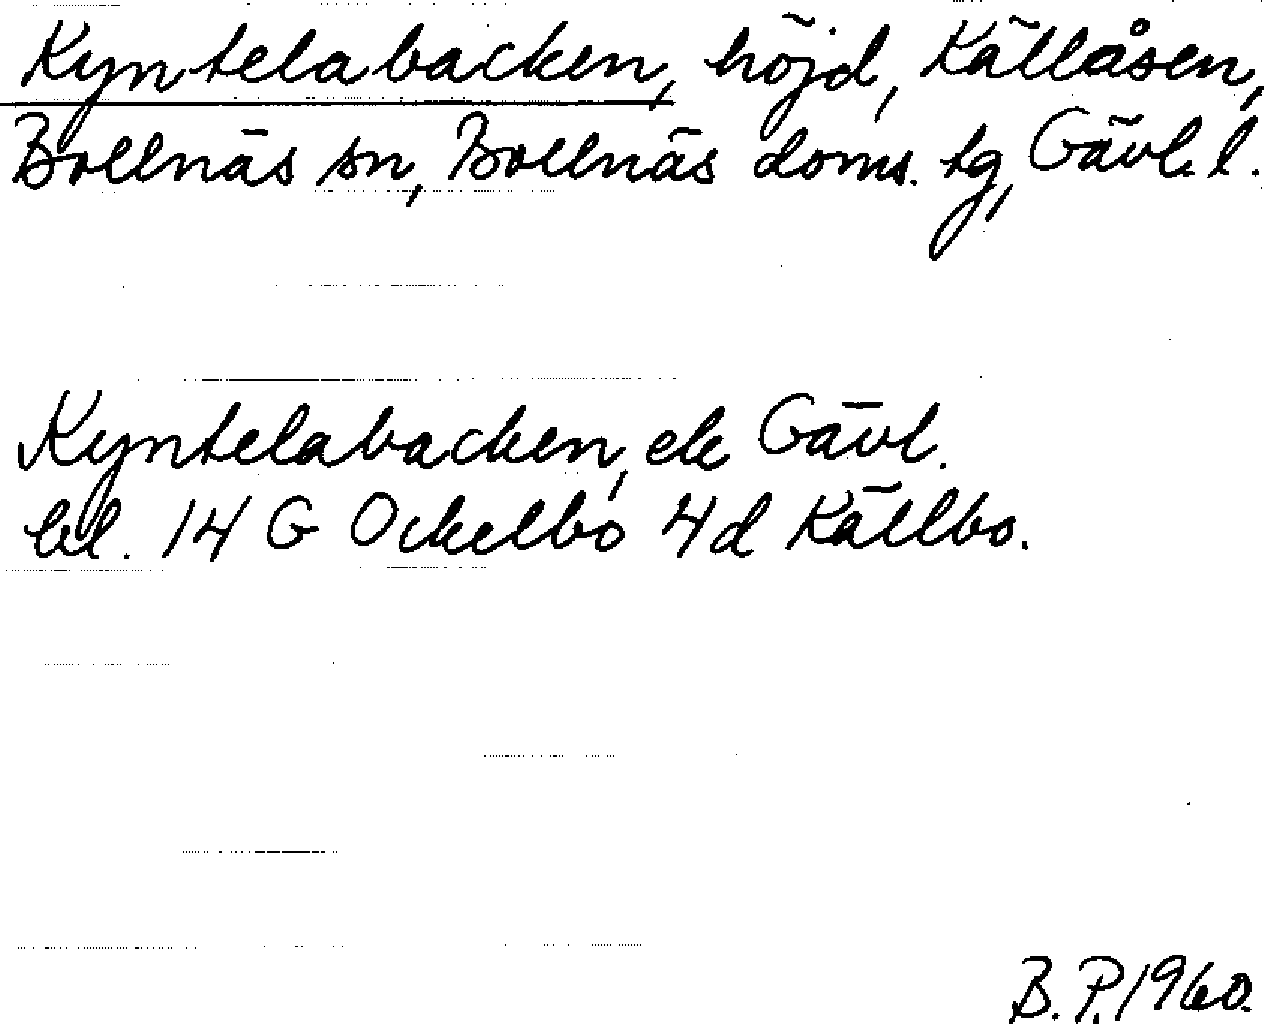 Kyntelabacken, höjd, Källåsen,
Bollnäs sn, Bollnäs doms. tg, Gävl. l.
Kyntelabacken, ek Gävl.
bl. 14 G Ockelbo 4d Källbo.
B. P. 1960.